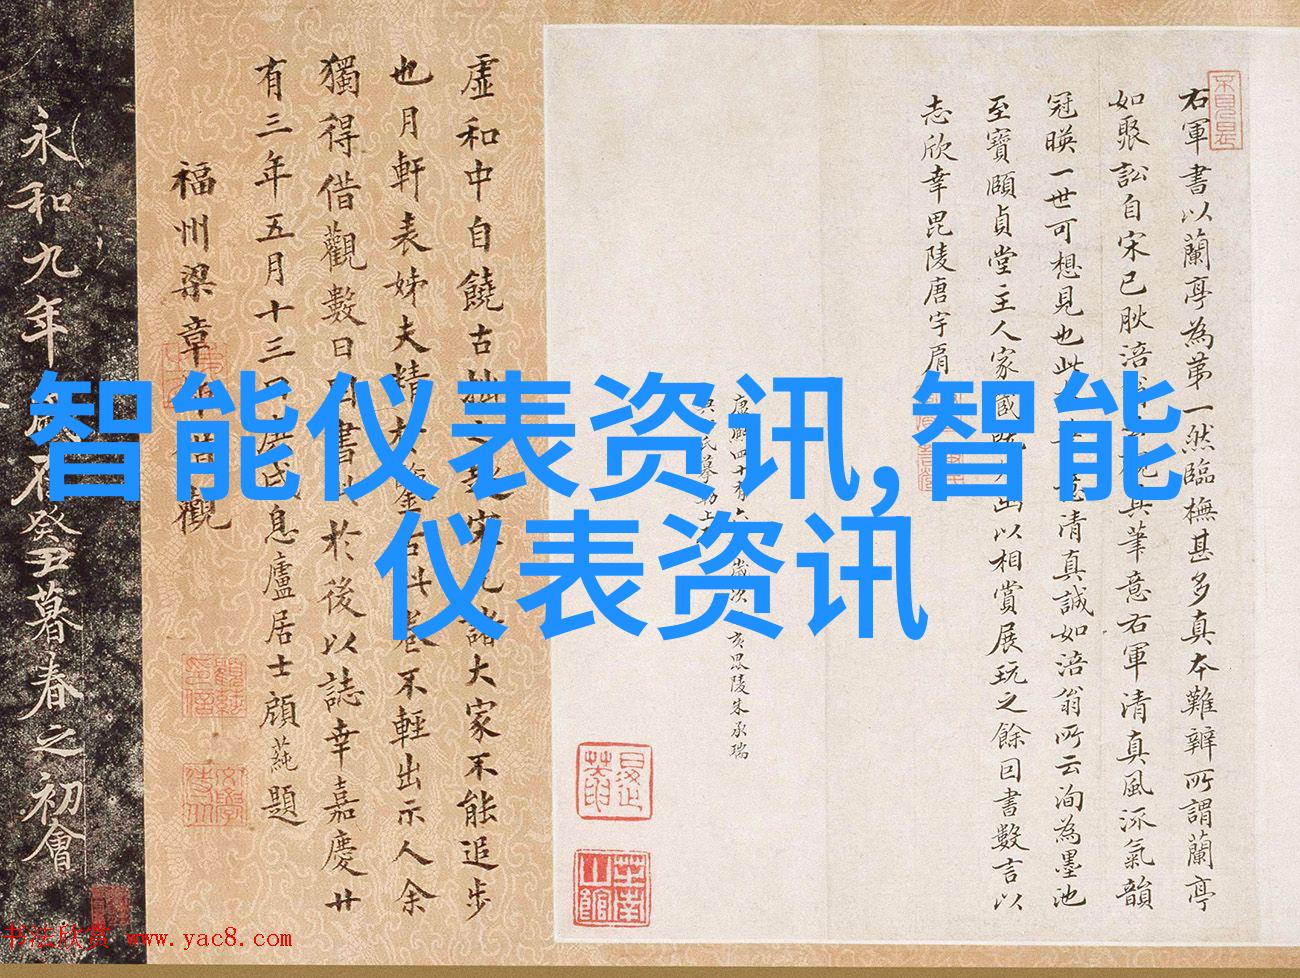 右軍書以蘭亭為第一然臨橅甚多真本難辨所謂蘭亭
如聚訟自宋已
冠暎一世可想見也此
至寶頤貞堂主人家國
出以相賞展玩之餘因書數言以
志欣幸毘陵唐宇肩
意清真誠如涪翁所云洵為墨池
真筆意右軍清真風流氣韻
毘陵朱承瑞
虛和中自饒古拙之
諸大家不能追步
也月軒表姊夫精於鑒古
卷不輕出示人余
獨得借觀數日
書
於後以誌幸嘉慶廿
有三年五月十三日庚戌息廬居士顧蒓題
福州梁章
觀
永和九年歲
癸丑暮春之初會
智能仪表资讯,智能
仪表资讯
书法欣赏 www.yac8.com